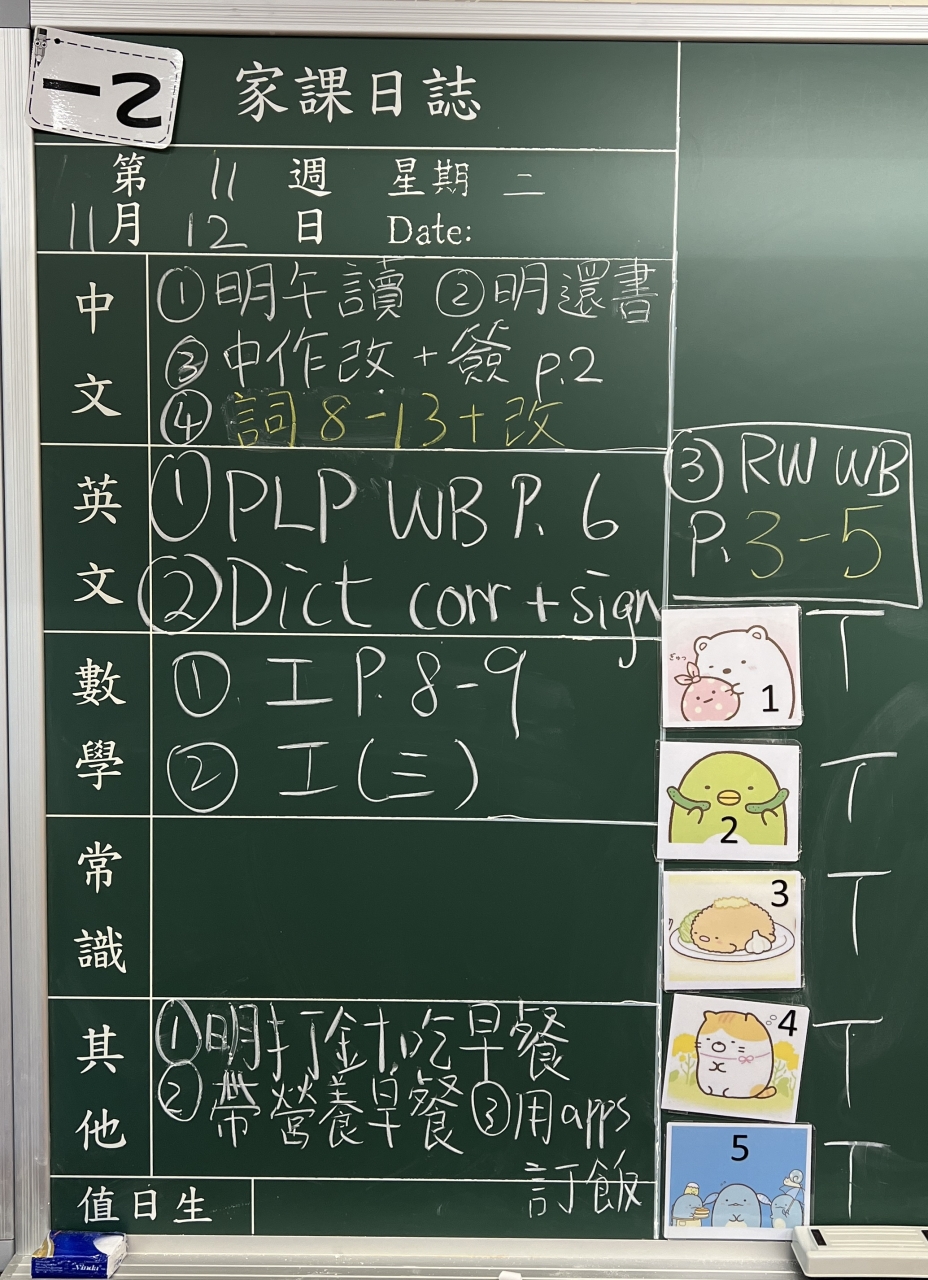 一2
家課日誌
第 11 週 星期 二
11月 12 日 Date:
中文
①明午讀 ②明還書
③中作改+簽 p.2
④詞8-13+改
英文
①PLP WB P. 6
②Dict corr + sign
③ RW WB
P. 3-5
數學
① 工 P. 8-9
② 工(三)
常識
其他
①明打針吃早餐
②帶營養早餐 ③用apps
訂飯
值日生
ぎゅっ
1 T
2 T
3 T
4 T
5 T